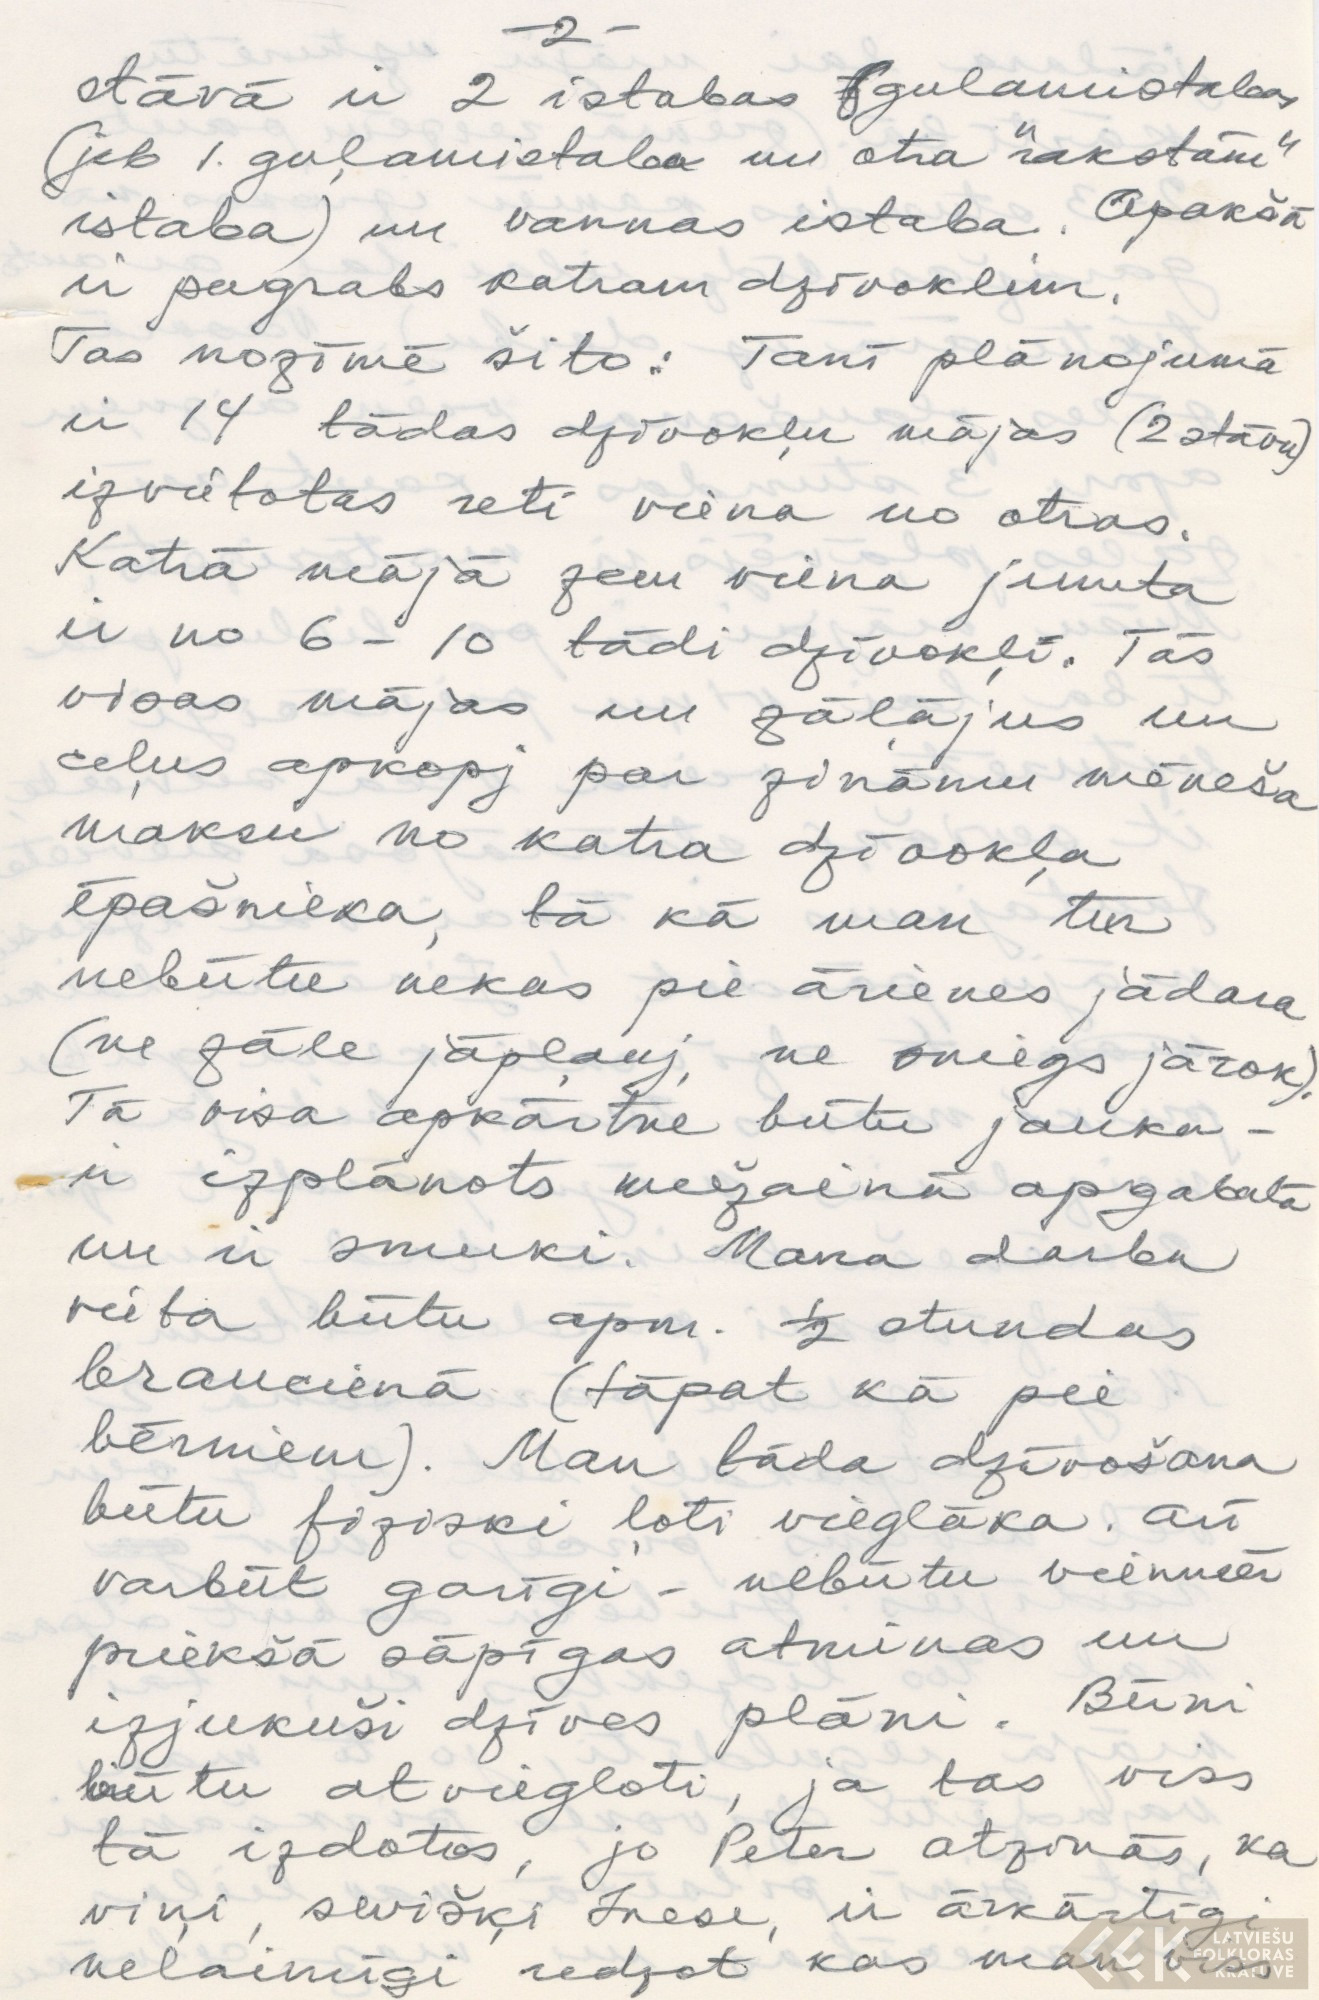 -2-
stāvā ir 2 istabas gulamistabas
(jeb 1. guļamistaba un otra "rakstām"
istaba) un vannas istaba. Apakšā
ir pagrabs katram dzīvoklim.
Tas nozīmē šito: Tanī plānojumā
ir 14 tādas dzīvokļu mājas (2 stāvu)
izvietotas reti viena no otras.
Katrā mājā zem viena jumta
ir no 6 - 10 tādi dzīvokļi. Tās
visas mājas un zālājus un
ceļus apkopj par zināmu mēneša
maksu no katra dzīvokļa
īpašnieka, tā kā man tur
nebūtu nekas pie ārienes jādara
(ne zāle jāpļauj, ne sniegs jārok).
Tā visa apkārtne būtu jauka -
ir izplānots mežainā apgabalā
un ir smuki. Mana darba
vieta būtu apm. ½ stundas
braucienā (tāpat kā pie
bērniem). Man tāda dzīvošana
būtu fiziski ļoti vieglāka. Arī
varbūt garīgi - nebūtu vienmēr
priekšā sāpīgas atmiņas un
izjukuši dzīves plāni. Bērni
būtu atviegloti, ja tas viss
tā izdotos, jo Peter atzinās, ka
viņi, sevišķi Inese, ir ārkārtīgi
nelaimīgi redzot kas man viss
LATVIEŠU
FOLKLORAS
KRĀTUVE